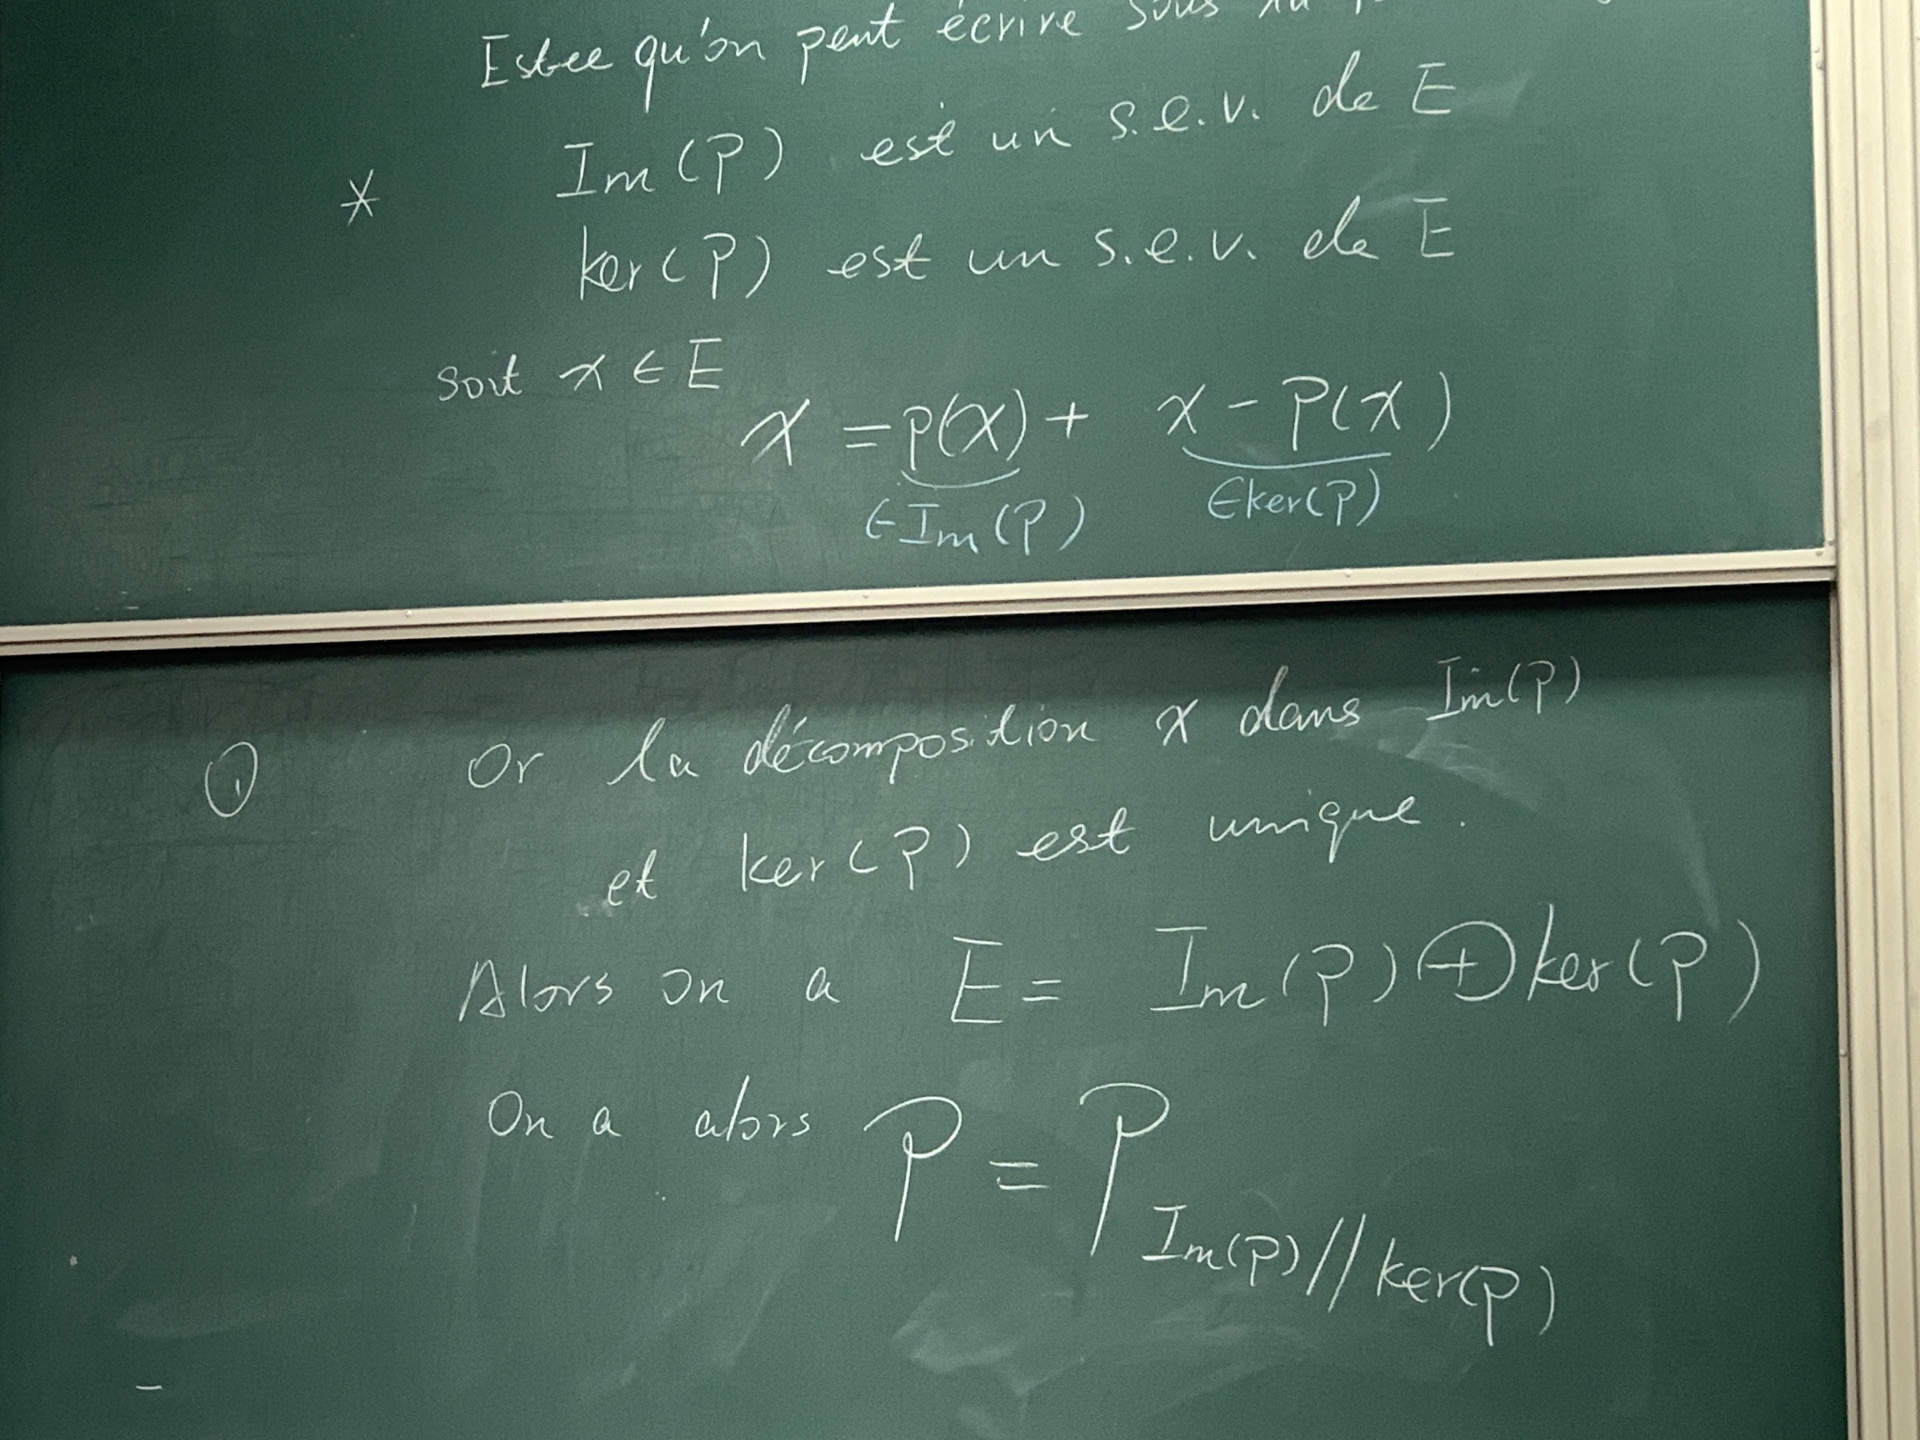 Estce qu'on peut écrire sous
Im(P) est un s.e.v. de E
*
ker(P) est un s.e.v. de E
soit x ∈ E
x = p(x) + x - P(x)
∈ Im(P) ∈ ker(P)
① Or la décomposition x dans Im(P)
et ker(P) est unique.
Alors on a E = Im(P) ⊕ ker(P)
On a alors P = P Im(P)//ker(P)